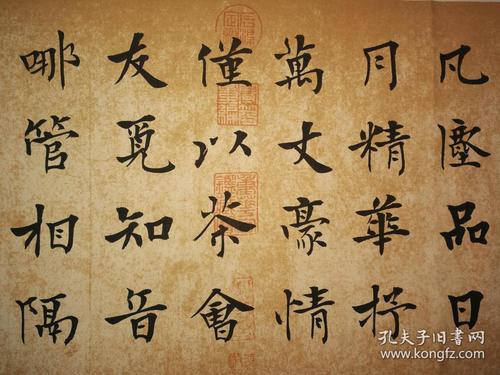 凡塵品日
月精華抒
萬丈豪情
僅以茶會
友覓知音
哪管相隔
孔夫子旧书网
www.kongfz.com